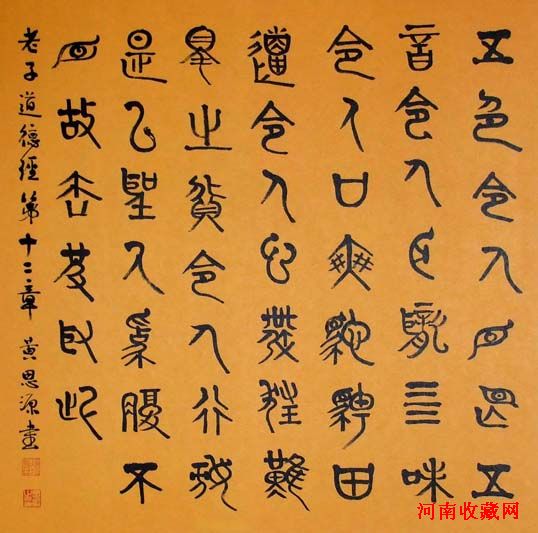 五色令人目盲五
音令人耳聾五味
令人口爽馳騁田
獵令人心發狂難
得之貨令人行妨
是以聖人為腹不
目故去彼取此
老子道德經第十二章 黃思源書
河南收藏网